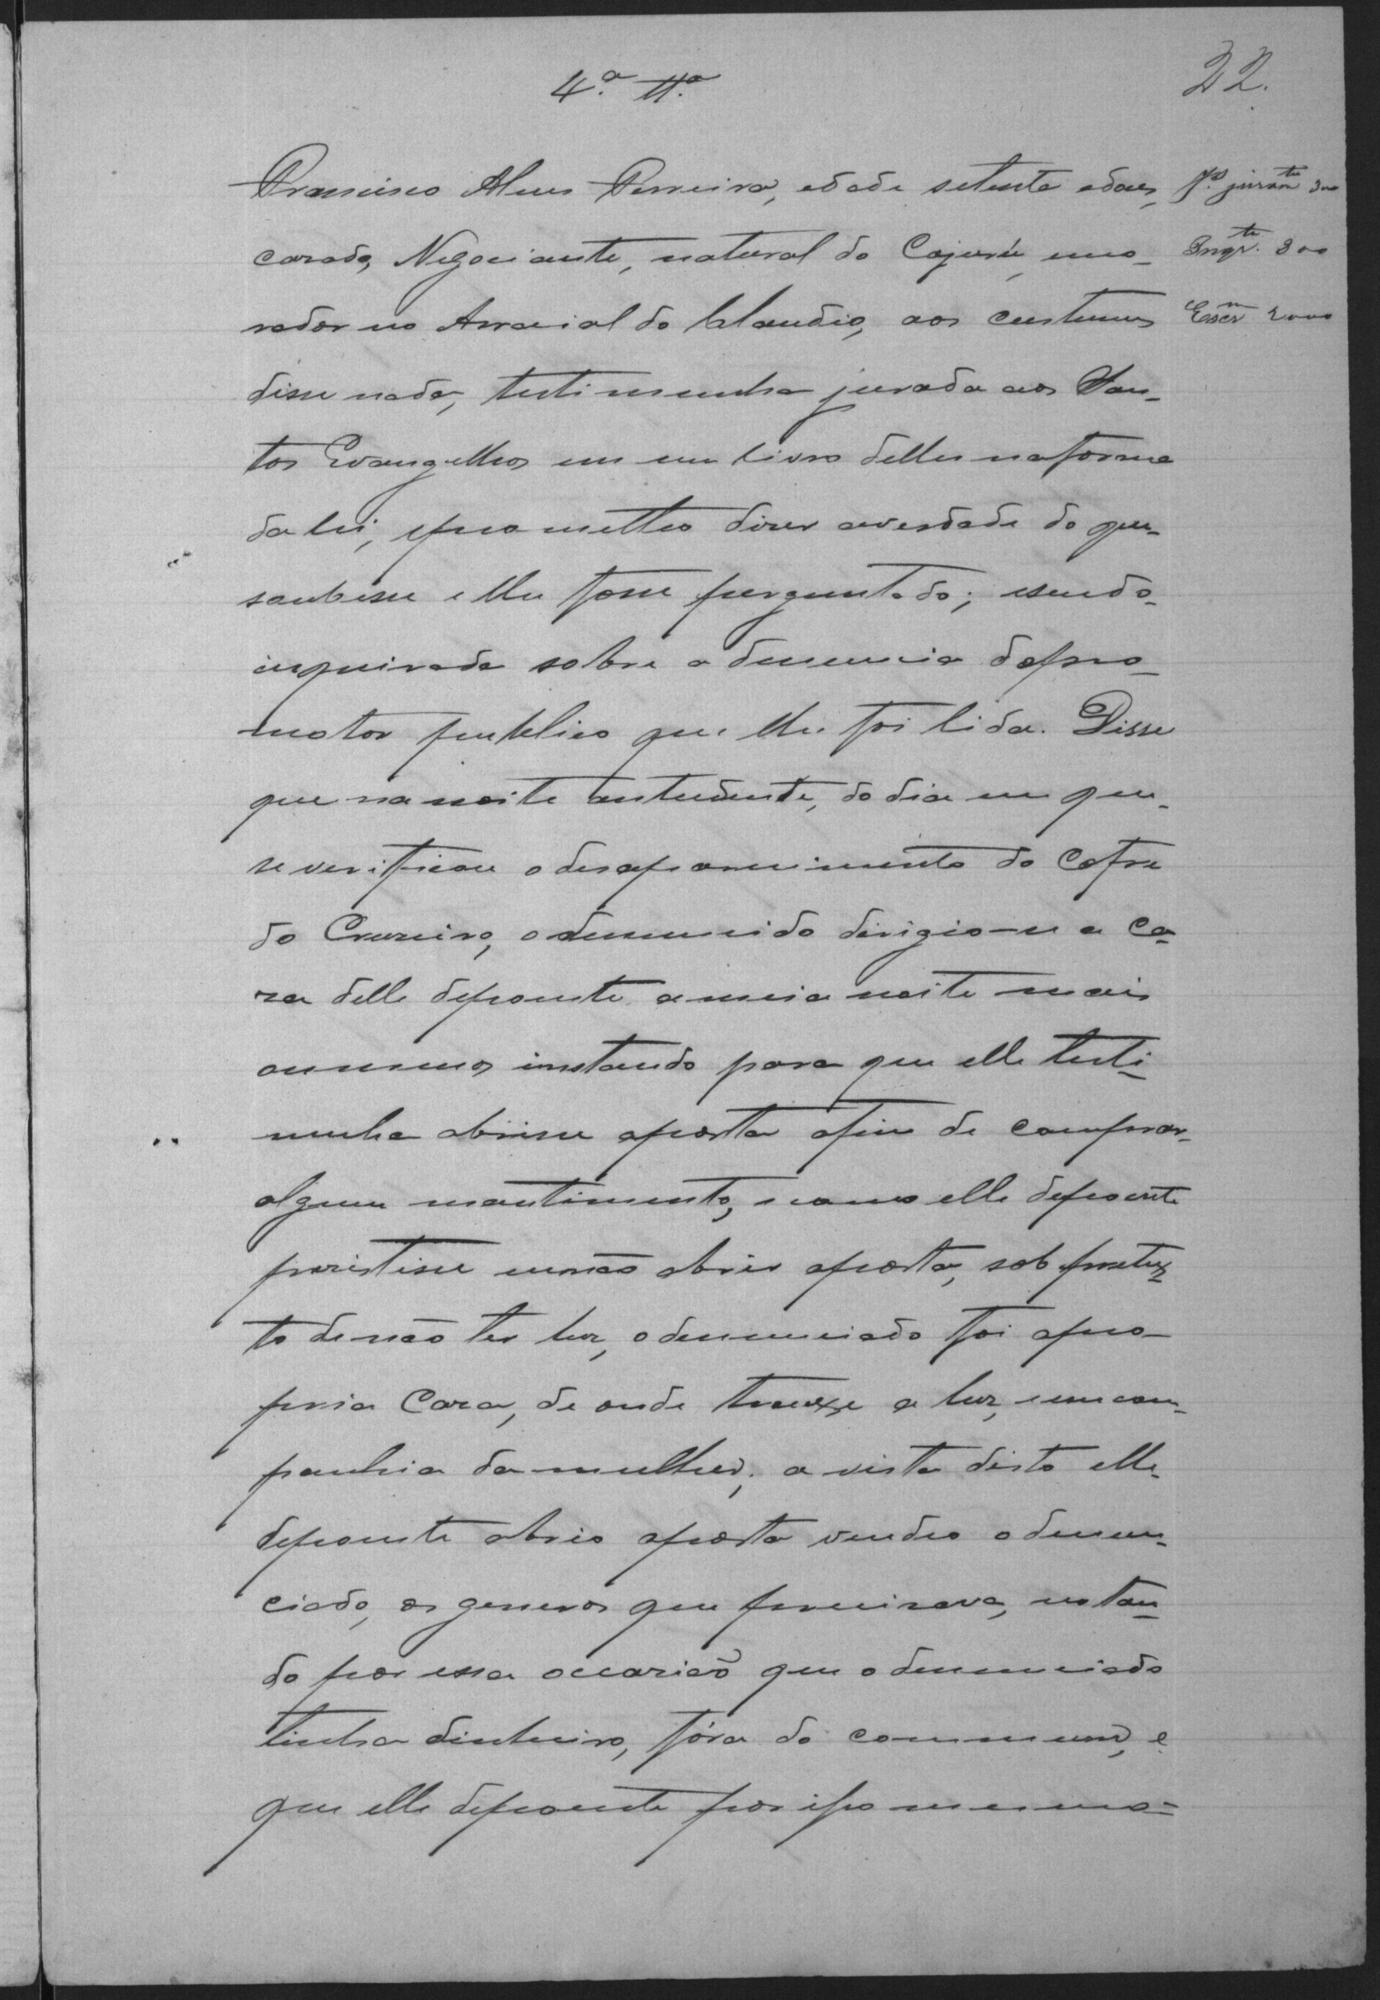 22.
4.ª Tª.
Francisco Alves Ferreira, edade setenta e dous,
casado, Negociante, natural do Cajurú, mo-
rador no Arraial do Claudio, aos custumes
disse nada, testimunha jurada aos San-
tos Evangelhos em um livro delles na forma
da lei, e prometteo dizer a verdade do que
soubesse e lhe fosse perguntado; e sendo
inquirida sobre a denuncia do pro-
motor publico que lhe foi lida. Disse
que na noite antecedente, do dia em que
se verificou o desaparecimento do Cofre
do Cruzeiro, o denunciado dirigio-se a ca-
za delle depoente a meia noite mais
ou menos instando para que elle testi-
munha abrisse a porta afim de comprar
algum mantimento, e como elle depoente
persistisse em não abrir a porta, sob pretex-
to de não ter luz, o denunciado foi a pro-
pria Caza, de onde trouxe a luz, e em com-
panhia da mulher; a vista disto elle
depoente abrio a porta vendeo o denun-
ciado, os generos que precisava, notan-
do por essa occazião que o denunciado
tinha dinheiro, fóra do commum, e
que elle depoente por isso mesmo=
Jº juramto 300
Inqrte. 300
Escrm 2000